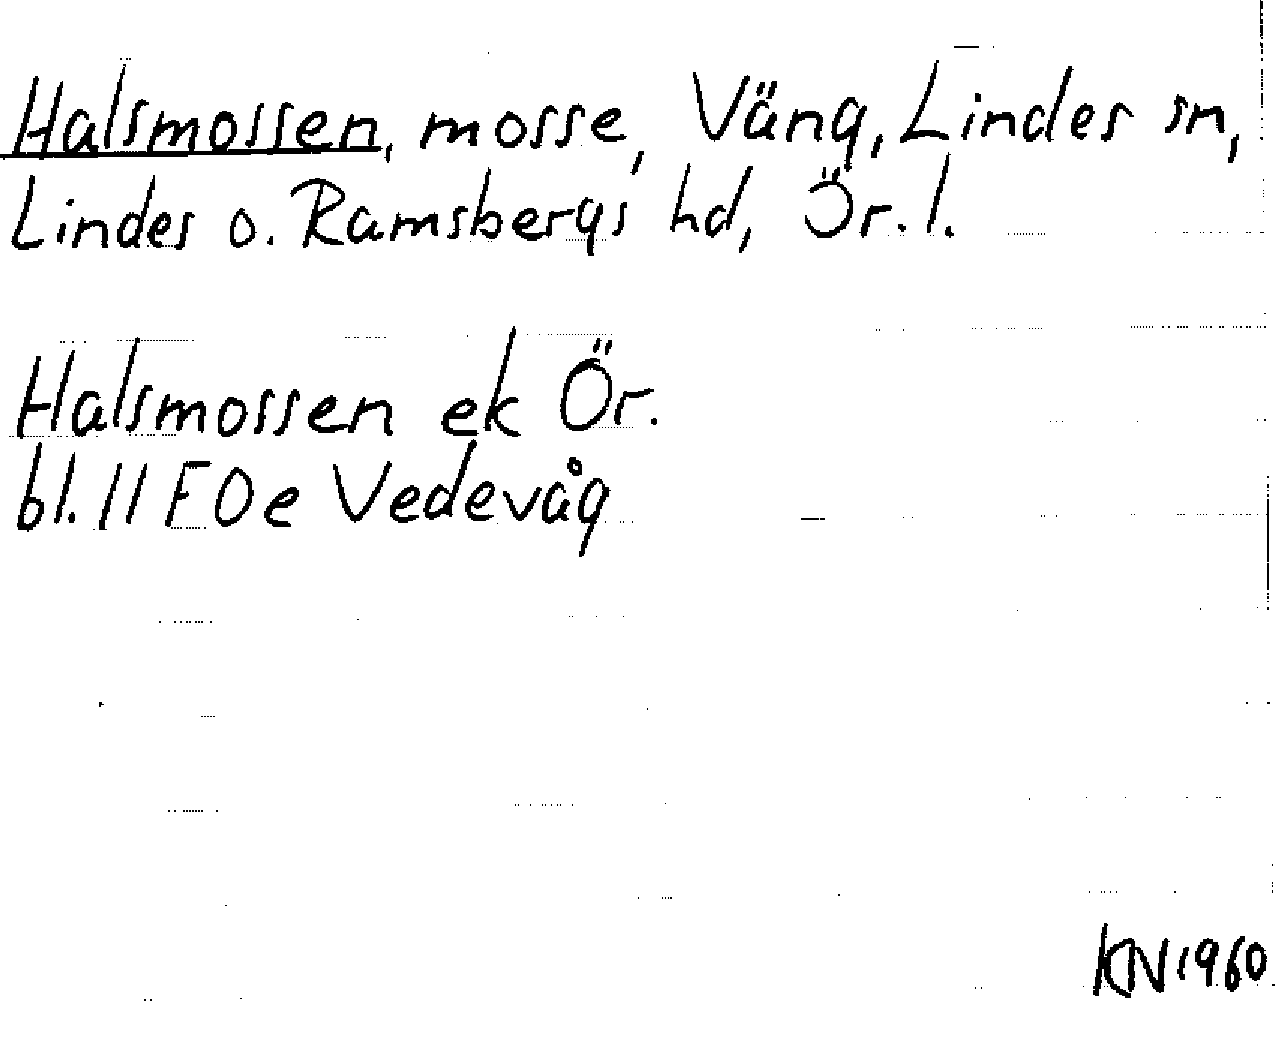 Halsmossen, mosse, Väng, Lindes sn,
Lindes o. Ramsbergs hd, Ör. l.
Halsmossen ek Ör.
bl. 11 F 0e Vedevåg
KN 1960